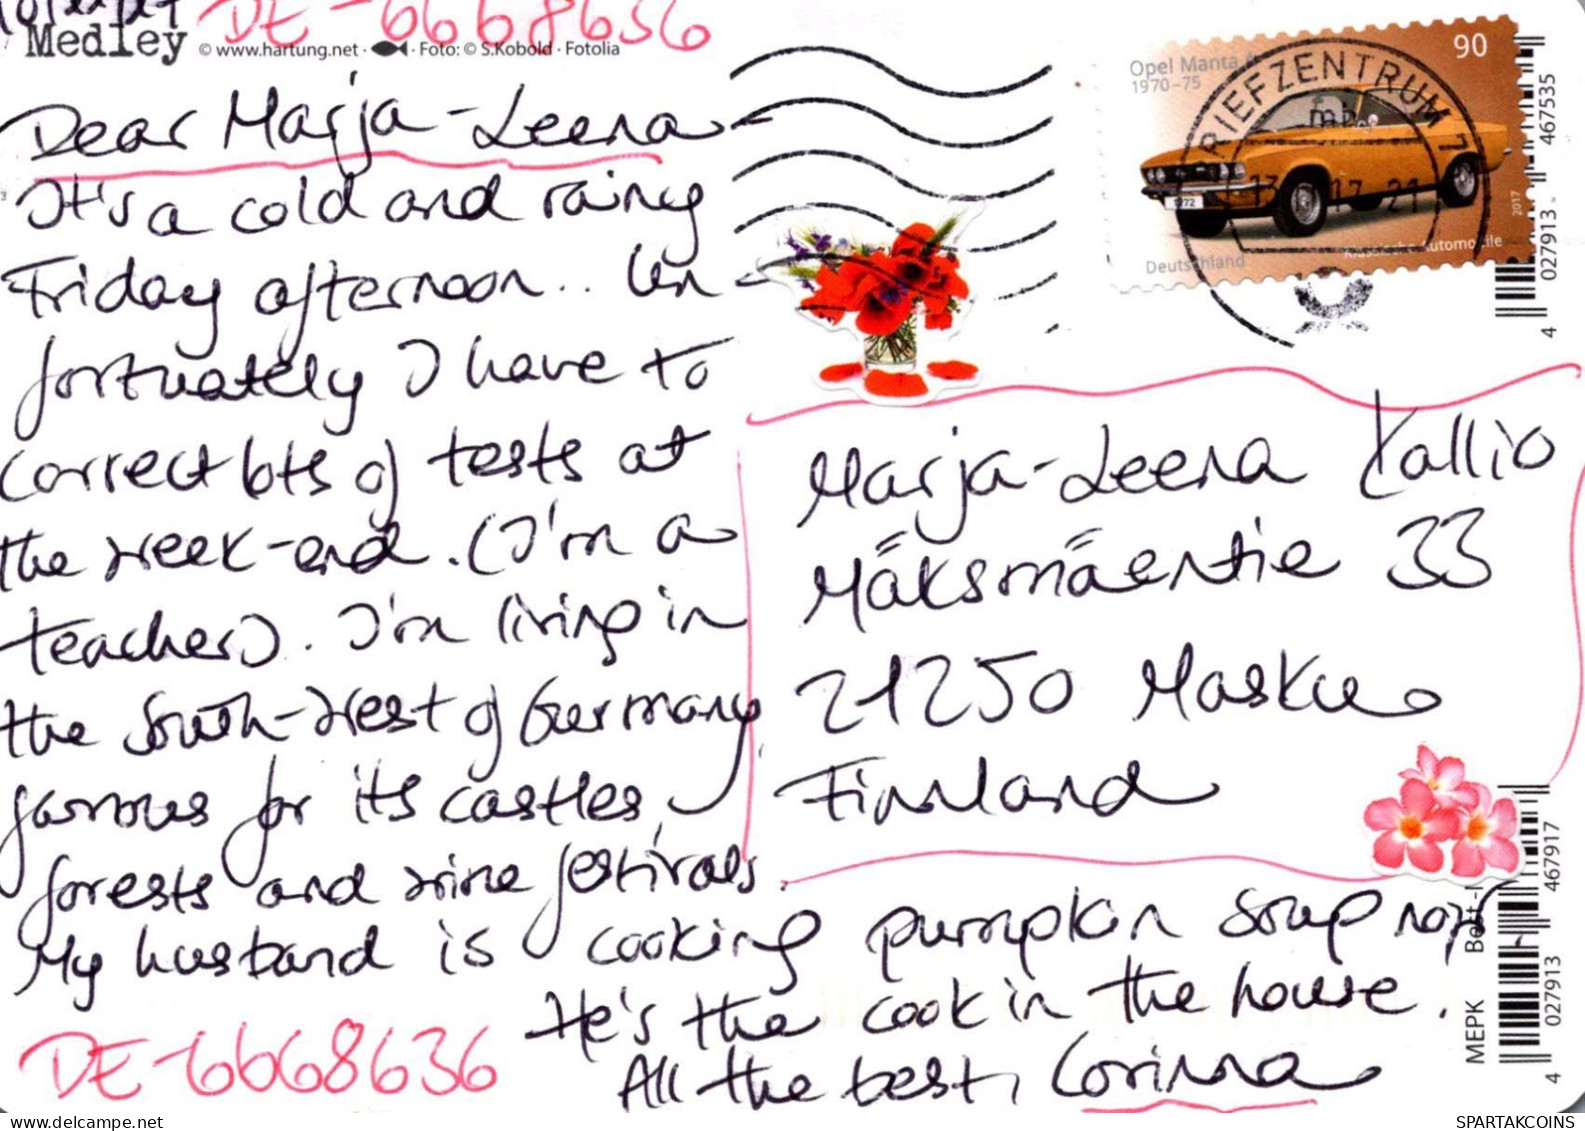 Medley © www.hartung.net · Foto: © S.Kobold · Fotolia
DE-6668636
Dear Marja-Leena
It's a cold and rainy
Friday afternoon.. Un-
fortuately I have to
correct lots of tests at
the week-end. (I'm a
teacher). I'm living in
the South-West of Germany
famous for its castles,
forests and wine festivals.
My husband is cooking pumpkin soup now
He's the cook in the house.
All the best, Corinna
DE-6668636
Opel Manta A
1970-75
90
Deutschland
Klassische Automobile
2017
BRIEFZENTRUM
Marja-Leena Kallio
Mäksmäentie 33
21250 Masku
Finnland
4 027913 467535
MEPK
4 027913 467917
SPARTAKCOINS